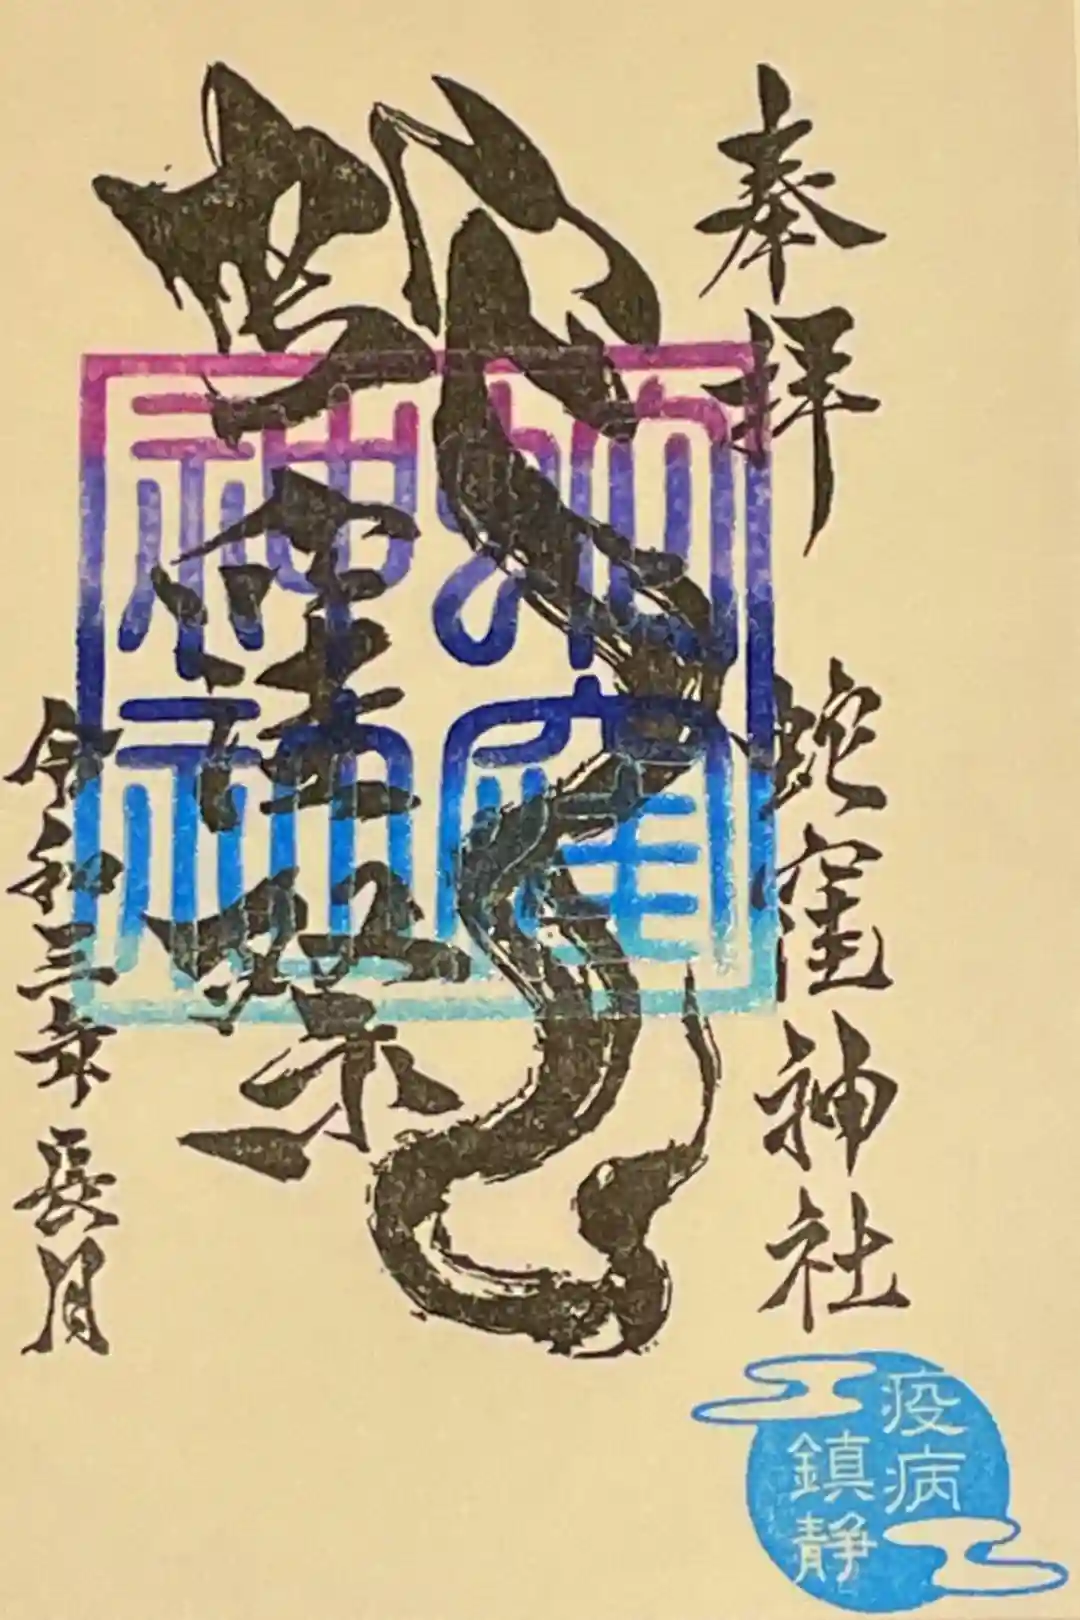 奉拝
蛇窪神社
祭
蛇窪
神社
令和三年長月
疫病
鎮静